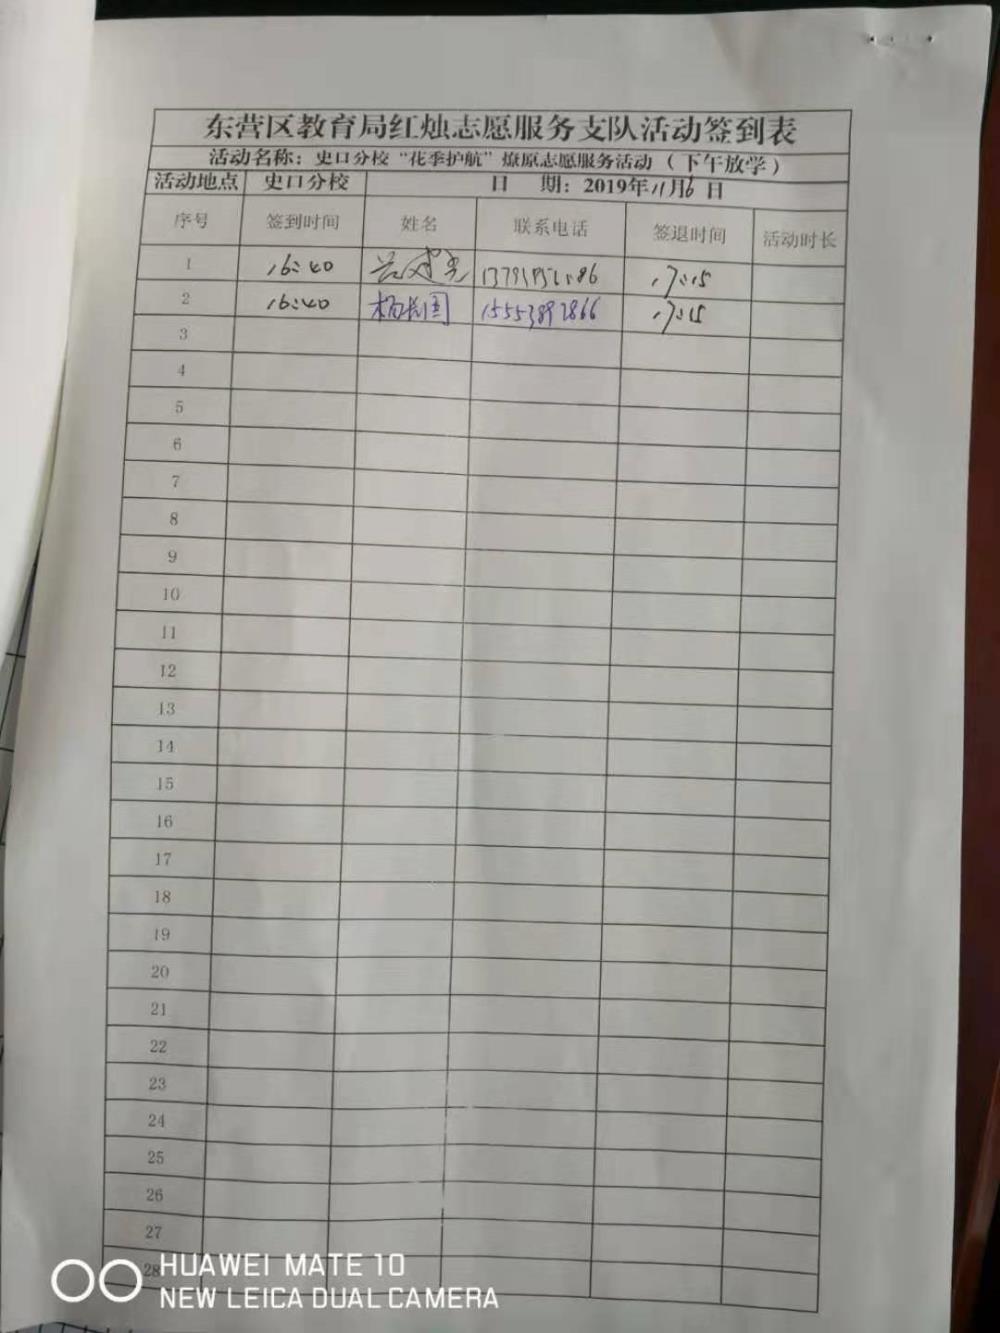 东营区教育局红烛志愿服务支队活动签到表
活动名称：史口分校“花季护航”燎原志愿服务活动（下午放学）
活动地点 史口分校 日 期：2019年11月6日
序号 签到时间 姓名 联系电话 签退时间 活动时长
1 16:40 17:15
2 16:40 15553892866 17:15
3
4
5
6
7
8
9
10
11
12
13
14
15
16
17
18
19
20
21
22
23
24
25
26
27
28
HUAWEI MATE 10
NEW LEICA DUAL CAMERA